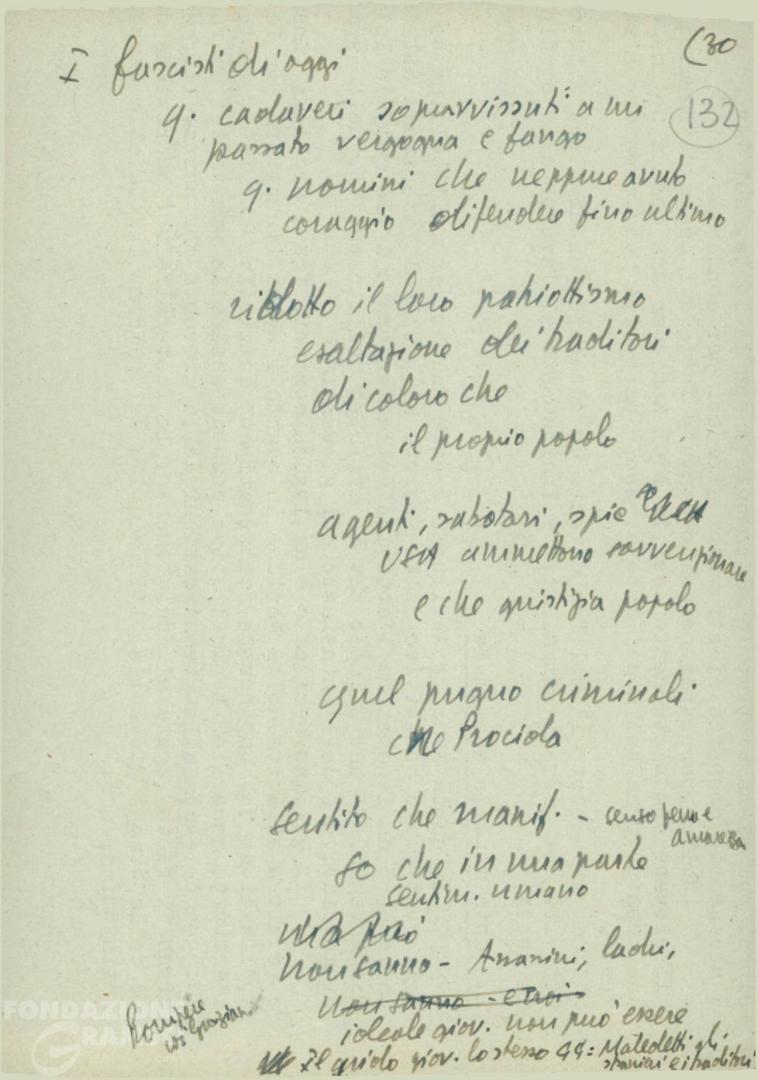 (30
132
I fascisti di oggi
q. cadaveri sopravvissuti a un
passato vergogna e fango
q. uomini che neppure avuto
coraggio difendere fino ultimo
ridotto il loro patriottismo
esaltazione dei traditori
di coloro che
il proprio popolo
agenti, sabotari, spie che
USA ammettono sovvenzionare
e che giustizia popolo
quel pugno criminali
che Procida
Sentito che manif. - senso pena e
amarezza
So che in una parte
sentim. umano
ma può
Non sanno - Assassini, ladri,
non sanno - eroi
ideale giov. non può essere
Il grido giov. lo stesso 48: Maledetti gli
stranieri e i traditori
Rompere
FONDAZIONE
GRAMSCI